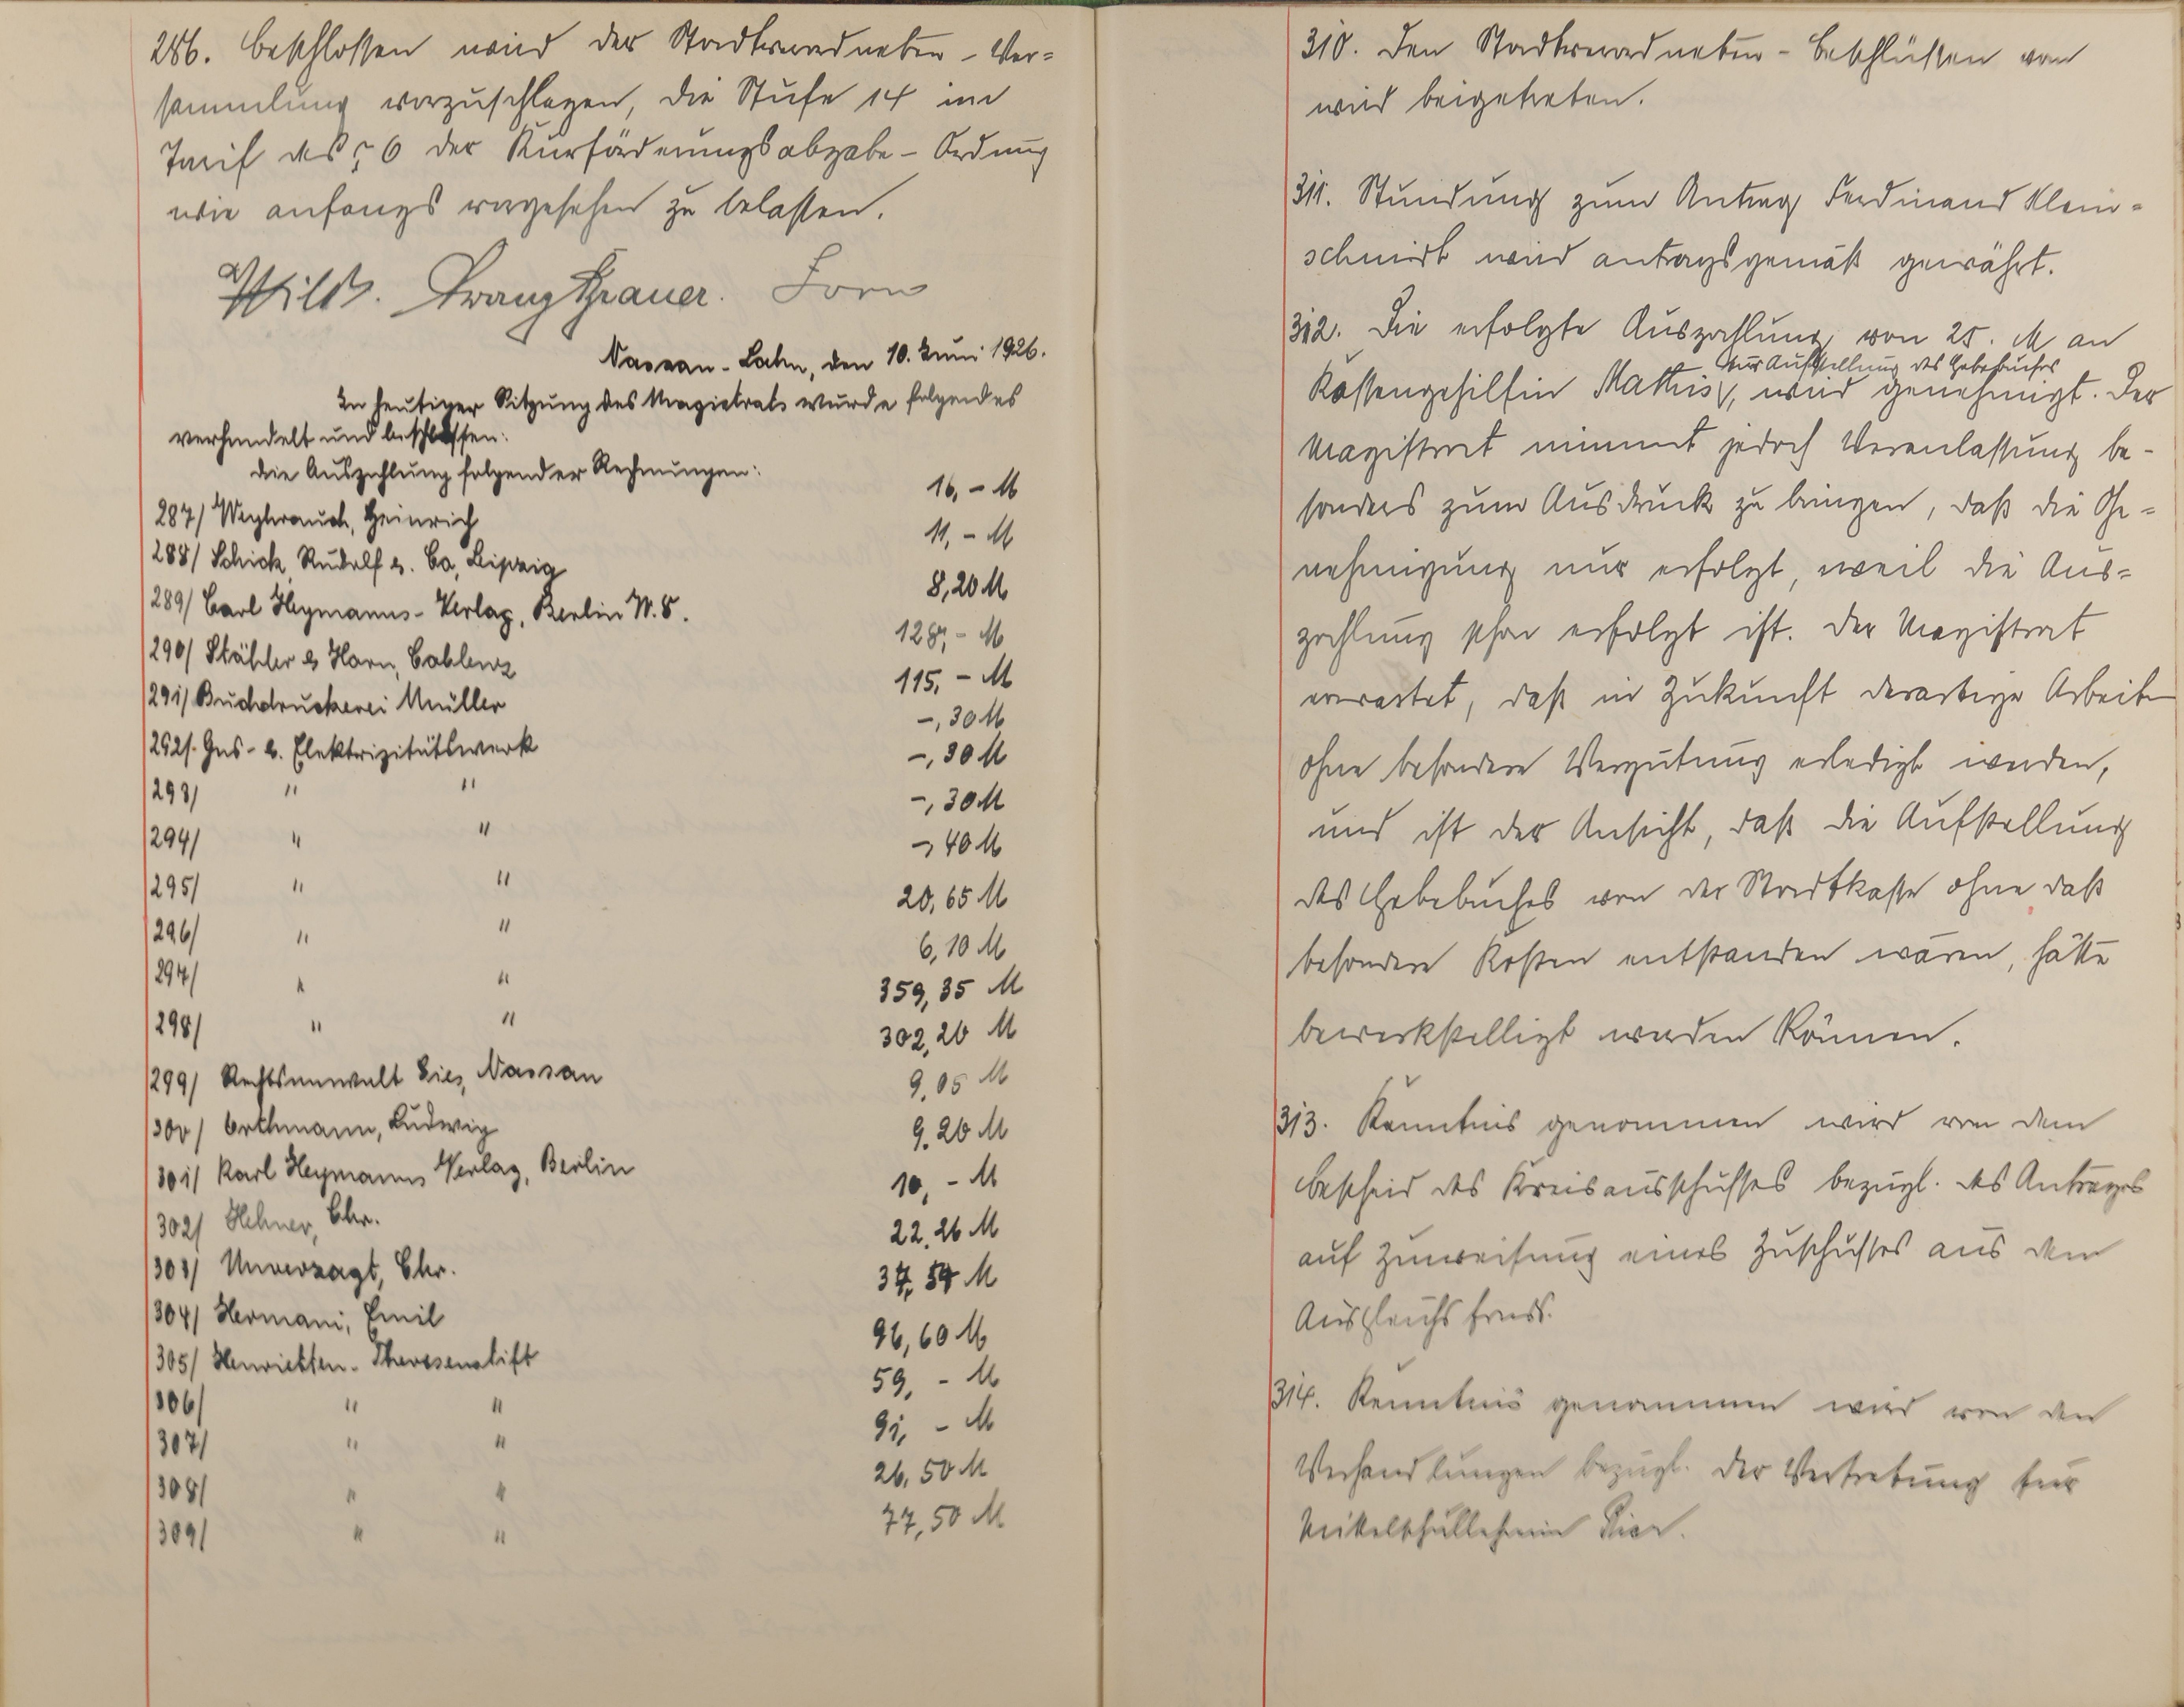 286. Beschlossen wird der Stadtverordneten-Ver=
sammlung vorzuschlagen, die Stufe 14 im
Tarif des § 6 der Kurförderungsabgabe-Ordnung
wie anfangs vorgesehen zu belassen.
Franz Grauer.
Nassau-Lahn, den 10. Juni 1926.
In heutiger Sitzung des Magistrats wurde folgendes
verhandelt und beschlossen:
die Auszahlung folgender Rechnungen:
287/ Weyhrauch, Heinrich 16,- M
288/ Schick, Rudolf u. Co, Leipzig 11,- M
289/ Carl Heymanns-Verlag, Berlin W. 8. 8,20 M
290/ Stähler & Horn, Coblenz 128,- M
291/ Buchdruckerei Müller 115,- M
292/ Gas- u. Elektrizitätswerk -,30 M
293/ " " -,30 M
294/ " " -,30 M
295/ " " -,40 M
296/ " " 20,65 M
297/ " " 6,10 M
298/ " " 359,35 M
299/ Rechtsanwalt Nassau 302,20 M
300/ Orthmann, Ludwig 9,05 M
301/ Karl Heymanns Verlag, Berlin 9,20 M
302/ Hehner, Chr. 10,- M
303/ Unverzagt, Chr. 22,26 M
304/ Hermani, Emil 37,54 M
305/ Henrietten-Theresenstift 96,60 M
306/ " " 59,- M
307/ " " 91,- M
308/ " " 26,50 M
309/ " " 77,50 M
310. Den Stadtverordneten-Beschlüssen vom
wird beigetreten.
311. Stundung zum Antrag Ferdinand Klein-
schmidt wird antragsgemäß gewährt.
312. Die erfolgte Auszahlung von 25. M an
zur Aufstellung des Hebebuches
Kassengehilfin Mathis, wird genehmigt. Der
Magistrat nimmt jedoch Veranlassung be-
sonders zum Ausdruck zu bringen, daß die Ge=
nehmigung nur erfolgt, weil die Aus=
zahlung schon erfolgt ist. Der Magistrat
erwartet, daß in Zukunft derartige Arbeiten
ohne besondere Vergütung erledigt werden,
und ist der Ansicht, daß die Aufstellung
des Hebebuches von der Stadtkasse ohne daß
besondere Kosten entstanden wären, hätte
bewerkstelligt werden können.
313. Kenntnis genommen wird von dem
Bescheid des Kreisausschusses bezügl. des Antrages
auf Zuweisung eines Zuschusses aus dem
Ausgleichsfonds.
314. Kenntnis genommen wird von den
Verhandlungen bezügl. der Vertretung für
Mittelschullehrerin